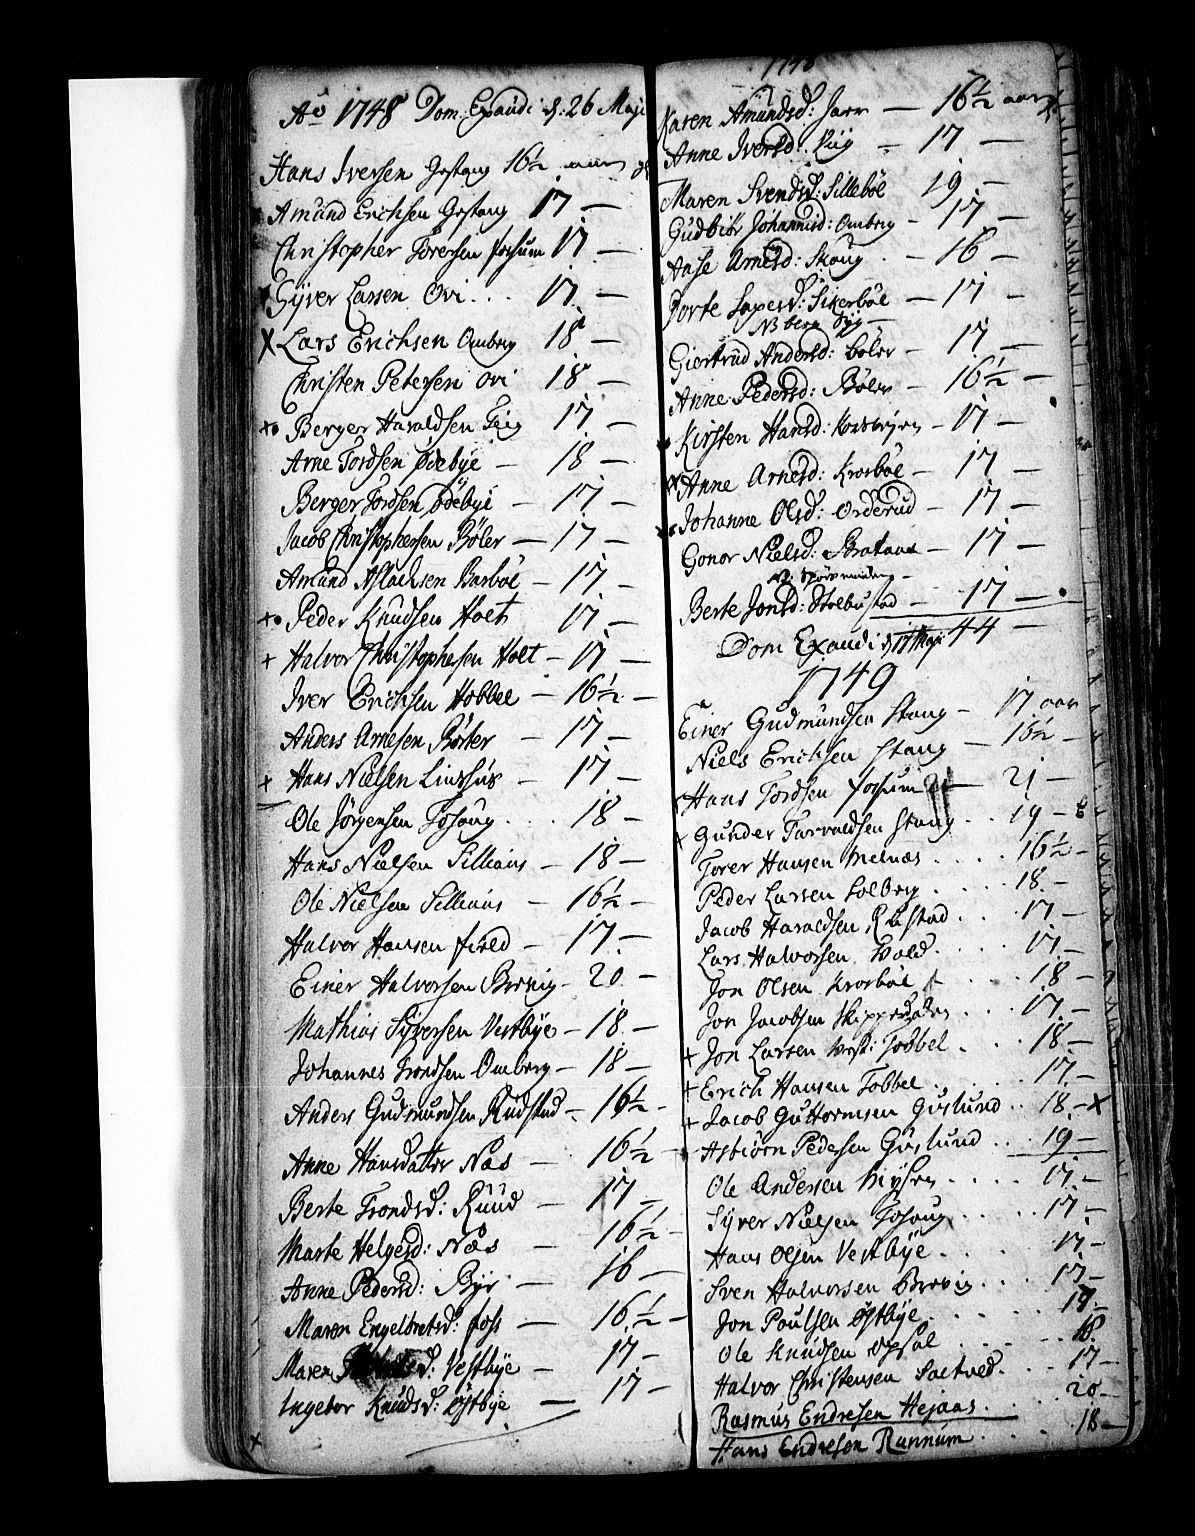 Ao 1748 Dom. Exaudi d: 26 Maji
Hans Iversen Gestang 16½
Amund Erichsen Gestang 17 —
Christopher Torersen fossum 17 —
Syver Larsen Ovi . . . 17 —
X Lars Erichsen Omberg 18 —
Christen Petersen Ovi 18 —
+ Berger Haraldsen Teig 17 —
Arne Tordsen Ødebye — 18 —
Berger Tordsen Ødebye — 17 —
Jacob Christophersen Bøler — 17 —
Amund Aslachsen Barbøl — 17 —
+ Peder Knudsen Holt 17 —
+ Halvor Christophersen Holt — 17 —
Iver Erichsen Hobbel — 16½ —
Anders Arnesen Bøler — 17 —
+ Hans Nielsen — 17 —
Ole Jørgensen . . . 18 —
Hans Nielsen — 18 —
Ole Nielsen — 16½ —
Halvor Hansen — 17 —
Einer Halvorsen Brevig — 20 —
Mathias Syversen Vestbye — 18 —
Johannes Trondsen Omberg — 18 —
Anders Gudmundsen Rudstad — 16½ —
Anne Hansdatter Næs — 16½ —
Berte Trondsd: Ruud — 17 —
Marte Helgesd: Næs — 16½ —
Anne Pedersd: — 16 —
Maren Engelbretsd: foss — 16½ —
Maren Vestbye — 17 —
Ingebor Knudsd: Østbye — 17 —
1748
Karen Amundsd: — 16½ aar
Anne Iversd: — 17 —
Maren Svendsd: Sillebøl 19 —
Gudbiør Johannisd: Omberg — 17 —
Aase Arnesd: Skoug — 16 —
Dorte — 17 —
Giertrud Andersd: Bøler — 17 —
Anne Pedersd: Bøler — 16½ —
Kirsten Hansd: — 17 —
Anne Arnesd: Krosbøl — 17 —
Johanne Olsd: Orderud — 17 —
Gonor Nielsd: — 17 —
Berte Jonsd: — 17 —
44 —
Dom Exaudi d 17 Maji
1749
Einer Gudmundsen Stang — 17 aar
Niels Erichsen Stang — 16½ —
Hans Tordsen fossum — 21 —
+ Gunder Torvaldsen Stang . . 19 —
Torer Hansen Melnæs . . . . 16½ —
Peder Larsen Solberg . . . . 18 —
Jacob Haraldsen . . . 17 —
Lars Halvorsen . . . . 17 —
Jon Olsen Krosbøl . . . . 18 —
Jon Jacobsen . . . 17 —
+ Jon Larsen Tobbel . . . 18 —
+ Erich Hansen Tobbel . . . . 17 —
+ Jacob Guttormsen Guslund . . 18 — X
Asbiørn Pedersen Guslund . . . 19 —
Ole Andersen . . . . 17 —
Syver Nielsen . . . . 17 —
Hans Olsen Vestbye . . . . 17 —
Sven Halvorsen Brevig . . . 17 —
Jon Poulsen Østbye . . . . 17 —
Ole Knudsen Opsal . . . . 18
Halvor Christensen Soetved . . . 17 —
Rasmus Endresen Hejaas . . . . 20 —
Hans Endresen Runnum . . . . 18 —